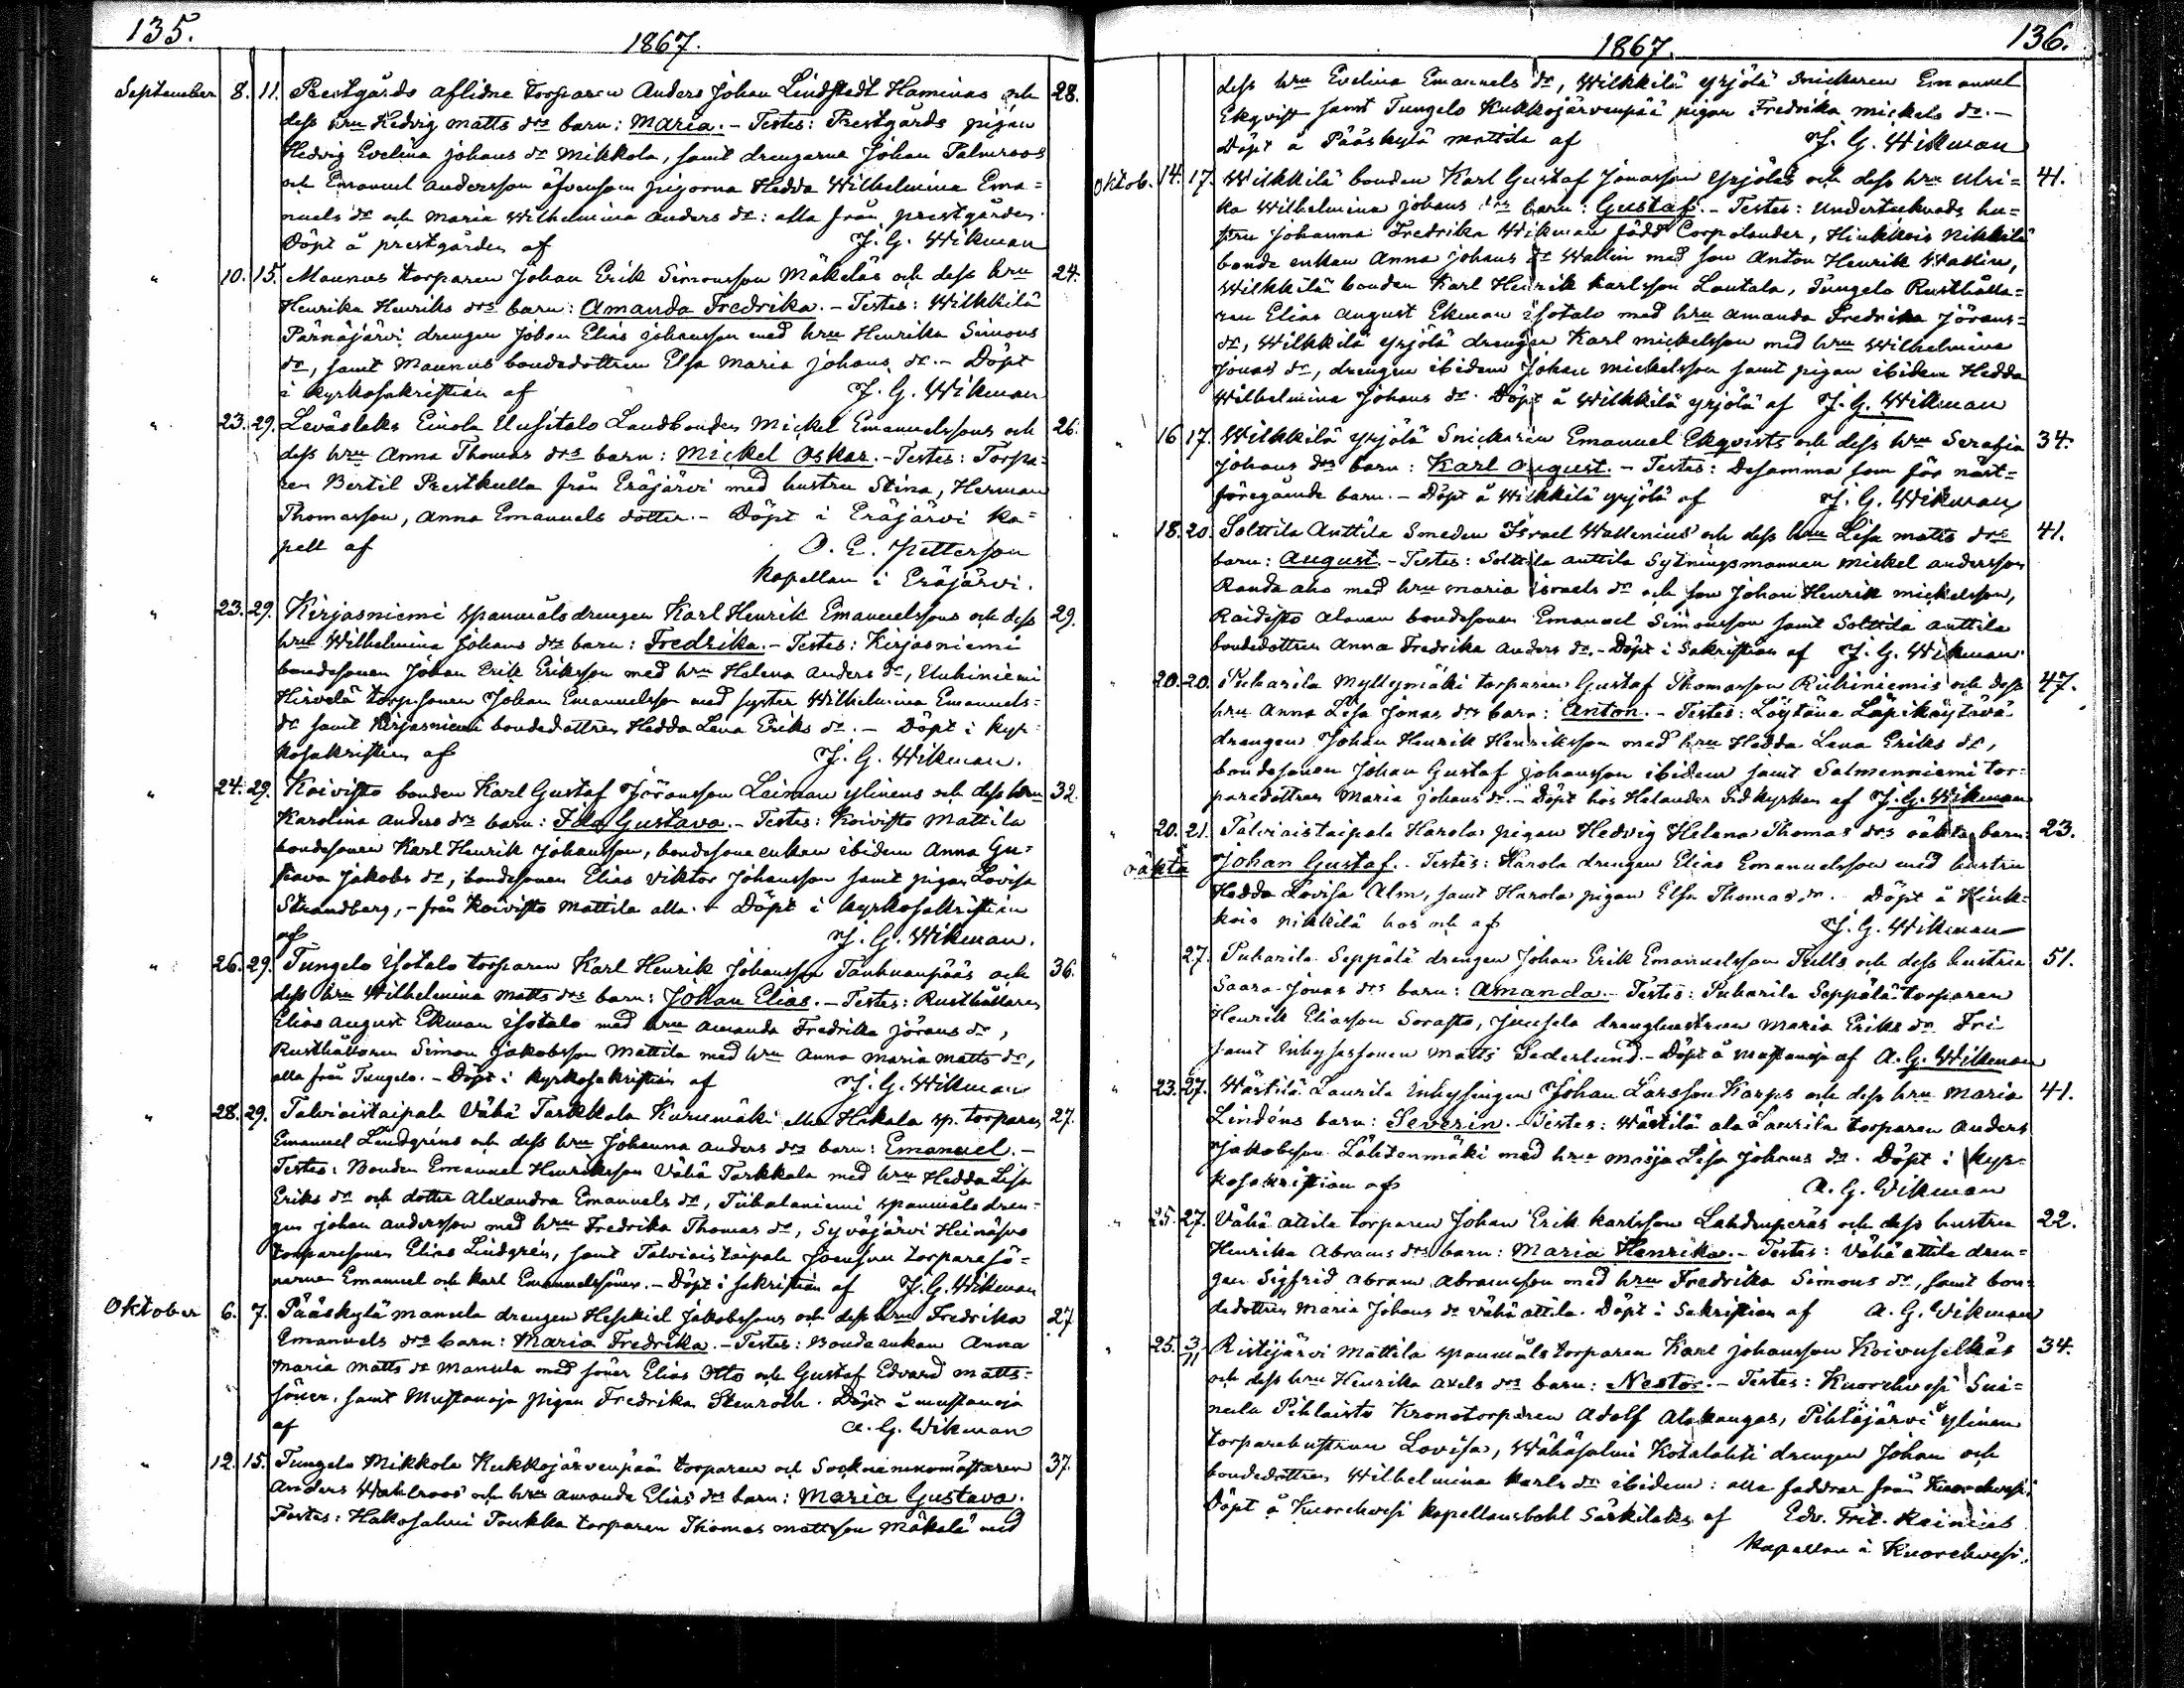 135.
1867.
September 8. 11. Prestgårds aflidne torparen Anders Johan Lindstedt Haminas och 28.
dess hru Hedvig Matts drs barn: Maria. - Testes: Prestgårds pigan
Hedvig Evelina Johans dr Mikkola, samt drengarne Johan Palmroos
och Emanuel Andersson äfvensom pigorna Hedda Wilhelmina Ema=
nuels dr och Maria Wilhelmina Anders dr: alla från prestgården.
Döpt å prestgården af J. G. Wikman
" 10. 15. Maunus torparen Johan Erik Simonsson Mäkeläs och dess hru 24.
Henrika Henriks drs barn: Amanda Fredrika. - Testes: Wilkkilä
Pärnäjärvi drengen Johan Elias Johansson med hru Henrika Simons
dr, samt Maunus bondedottren Elsa Maria Johans dr. - Döpt
i kyrkosakristian af J. G. Wikman
" 23. 29. Leväslaks Einola Uusitalo Landbonden Mickel Emanuelssons och 26.
dess hru Anna Thomas drs barn: Mickel Oskar. - Testes: Torpa=
ren Bertil Prestkulla från Eräjärvi med hustru Stina, Herman
Thomasson, Anna Emanuels dotter. - Döpt i Eräjärvi ka=
pell af O. E. Petterson
Kapellan i Eräjärvi.
" 23. 29. Kirjasniemi spanmålsdrengen Karl Henrik Emanuelssons och dess 29.
hru Wilhelmina Johans drs barn: Fredrika. - Testes: Kirjasniemi
bondesonen Johan Erik Eriksson med hru Helena Anders dr, Uuhiniemi
Hirvelä torpsonen Johan Emanuelsson med syster Wilhelmina Emanuels=
dr samt Kirjasniemi bondedottren Hedda Lena Eriks dr. - Döpt i kyr=
kosakristian af J. G. Wikman.
" 24. 29. Koivisto bonden Karl Gustaf Jöransson Leiman Ylinens och dess hru 32.
Karolina Anders drs barn: Ida Gustava. - Testes: Koivisto Mattila
bondesonen Karl Henrik Johansson, bondesone enkan ibidem Anna Gu=
stava Jakobs dr, bondesonen Elias Viktor Johansson samt pigan Lovisa
Strandberg, - från Koivisto Mattila alla. - Döpt i kyrkosakristian
af J. G. Wikman.
" 26. 29. Tungelo Isotalo torparen Karl Henrik Johansson Tanhuanpääs och 36.
dess hru Wilhelmina Matts drs barn: Johan Elias. - Testes: Rusthållaren
Elias August Ekman Isotalo med hru Amanda Fredrika Jörans dr,
Rusthållaren Simon Jakobsson Mattila med hru Anna Maria Matts dr,
alla från Tungelo. - Döpt i kyrkosakristian af J. G. Wikman
" 28. 29. Talviaistaipale Vähä Tarkkala Kurumäki eller Hakala sp. torparen 27.
Emanuel Lindgréns och dess hru Johanna Anders drs barn: Emanuel. -
Testes: Bonden Emanuel Henriksson Vähä Tarkkala med hru Hedda Lisa
Eriks dr och dotter Alexandra Emanuels dr, Tiihalaniemi spanmåls dren=
gen Johan Andersson med hru Fredrika Thomas dr, Syväjärvi Heinäsuo
torparesonen Elias Lindgrén, samt Talviaistaipale Joensuu torparesö=
nerna Emanuel och Karl Emanuelssöner. - Döpt i sakristian af J. G. Wikman
Oktober 6. 7. Pääskylä Mansula drengen Hesekiel Jakobssons och dess hru Fredrika 27
Emanuels drs barn: Maria Fredrika. - Testes: Bonde enkan Anna
Maria Matts dr Mansula med söner Elias Otto och Gustaf Edvard Matts=
söner, samt Mustanoja pigan Fredrika Stenroth. Döpt å Mustanoja
af A. G. Wikman
" 12. 15. Tungelo Mikkola Kukkojärvenpää torparen och Sockneskomästaren 37.
Anders Wahlroos och hru Amanda Elias drs barn: Maria Gustava.
Testes: Hakosalmi Poukka torparen Thomas Mattsson Mäkelä med
1867.
136.
dess hru Evelina Emanuels dr, Wilkkilä Yrjölä Snickaren Emanuel
Ekqvist samt Tungelo Kukkojärvenpää pigan Fredrika Mickels dr. -
Döpt å Pääskylä Mattila af J. G. Wikman
Oktob. 14. 17. Wilkkilä bonden Karl Gustaf Jonasson Yrjöläs och dess hru Ulri= 41.
ka Wilhelmina Johans drs barn: Gustaf. - Testes: Undertecknads hu=
stru Johanna Fredrika Wikman född Corpolander, Hinkkois Nikkilä
bonde enkan Anna Johans dr Wallin med son Anton Henrik Wallin,
Wilkkilä bonden Karl Henrik Karlsson Lautala, Tungelo Rusthålla=
ren Elias August Ekman Isotalo med hru Amanda Fredrika Jörans=
dr, Wilkkilä Yrjölä drengen Karl Mickelsson med hru Wilhelmina
Jonas dr, drengen ibidem Johan Mickelsson samt pigan ibidem Hedda
Wilhelmina Johans dr. Döpt å Wilkkilä Yrjölä af J. G. Wikman
" 16 17. Wilkkilä Yrjölä Snickaren Emanuel Ekqvists och dess hru Serafia 34.
Johans drs barn: Karl August. - Testes: Desamma som för näst=
föregående barn. - Döpt å Wilkkilä Yrjölä af J. G. Wikman
" 18. 20. Solttila Anttila Smeden Israel Wallenius och dess hru Lisa Matts drs 41.
barn: August. - Testes: Solttila Anttila Sytningsmannen Mickel Andersson
Randa aho med hru Maria Israels dr och son Johan Henrik Mickelsson,
Raidisto Alanen bondesonen Emanuel Simonsson samt Solttila Anttila
bondedottren Anna Fredrika Anders dr. - Döpt i Sakristian af J. G. Wikman.
" 20. 20. Puharila Myllymäki torparen Gustaf Thomasson Riihiniemis och dess 47.
hru Anna Lisa Jonas drs barn: Anton. - Testes: Löytäne Läpikäytävä
drengen Johan Henrik Henriksson med hru Hedda Lena Eriks dr,
bondesonen Johan Gustaf Johansson ibidem samt Salmenniemi tor=
paredottren Maria Johans dr. - Döpt hos Helander vid kyrkan af J. G. Wikman
" 20. 21. Talviaistaipale Harola pigan Hedvig Helena Thomas drs oäkta barn: 23.
oäkta Johan Gustaf. - Testes: Harola drengen Elias Emanuelsson med hustru
Hedda Lovisa Alm, samt Harola pigan Elsa Thomas dr. Döpt å Hink=
kois Nikkilä hos och af J. G. Wikman
" 27. Puharila Seppälä drengen Johan Erik Emanuelsson Trills och dess hustru 51.
Saara Jonas drs barn: Amanda. - Testes: Puharila Seppälä torparen
Henrik Eliasson Sorasto, Juusela drenghustrun Maria Eriks dr Fri
samt inhysessonen Matts Sederlund. - Döpt å Mustanoja af A. G. Wikman
" 23. 27. Wästilä Laurila Inhysingen Johan Larsson Karps och dess hru Maria 41.
Lindéns barn: Severin. - Testes: Wästilä ala Laurila torparen Anders
Jakobsson Lähteenmäki med hru Maija Lisa Johans dr. Döpt i kyr=
kosakristian af A. G. Wikman
" 25. 27. Vähä Attila torparen Johan Erik Karlsson Lahdenperäs och dess hustru 22.
Henrika Abrams drs barn: Maria Henrika. - Testes: Vähä Attila dren=
gen Sigfrid Abram Abramsson med hru Fredrika Simons dr, samt bon=
dedottren Maria Johans dr Vähä Attila. Döpt i Sakristian af A. G. Wikman
" 25. 3/11 Ristijärvi Mattila spanmålstorparen Karl Johansson Koivuselkäs 34.
och dess hru Henrika Axels drs barn: Nestor. - Testes: Kuorehvesi Sui=
nula Pihlaisto Kronotorparen Adolf Alakangas, Pihlajärvi Ylinen
torparehustrun Lovisa, Wähäsalmi Kotalahti drengen Johan och
bondedottren Wilhelmina Karls dr ibidem: alla faddrar från Kuorehvesi.
Döpt å Kuorehvesi kapellansbohl Särkilaks af Edv. Frit. Hainius
Kapellan i Kuorehvesi.